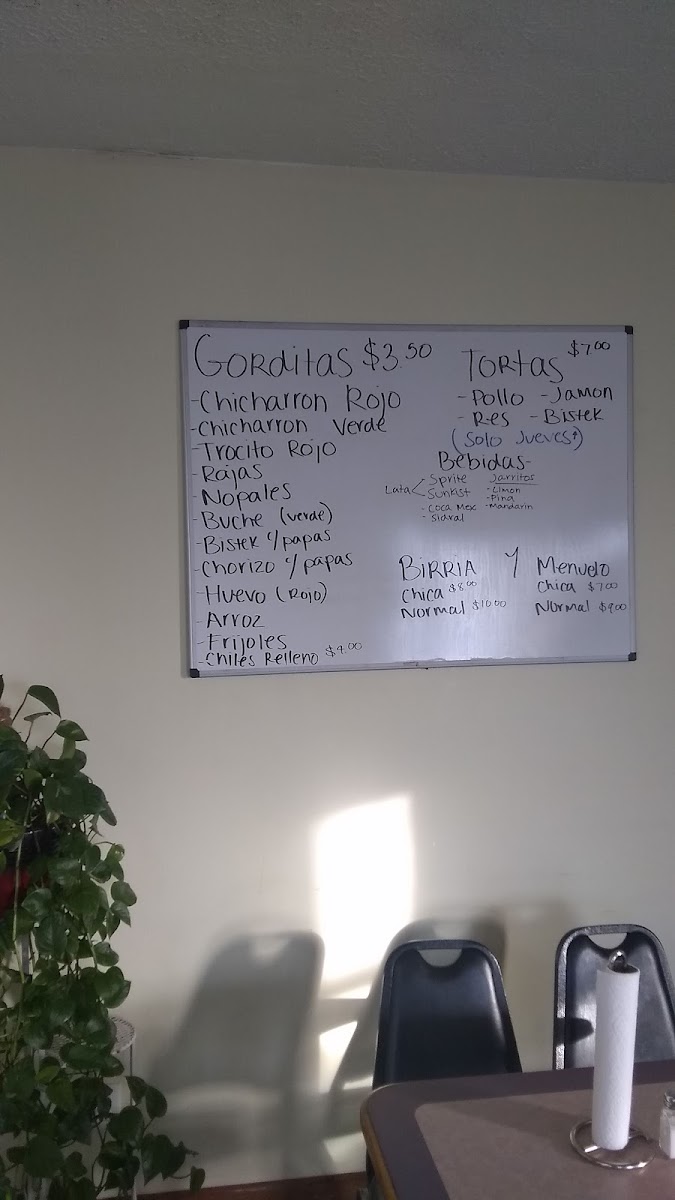 Gorditas $3.50
- Chicharron Rojo
- Chicharron Verde
- Trocito Rojo
- Rajas
- Nopales
- Buche (verde)
- Bistek c/papas
- Chorizo c/papas
- Huevo (Rojo)
- Arroz
- Frijoles
- Chiles Relleno $4.00
Tortas $7.00
- Pollo - Jamon
- Res - Bistek
(Solo Jueves)
Bebidas-
Lata < Sprite
Sunkist
- Coca Mex
- Sidral
Jarritos
- Limon
- Pina
- Mandarin
BIRRIA Y Menudo
Chica $8.00
Normal $10.00
Chica $7.00
Normal $9.00